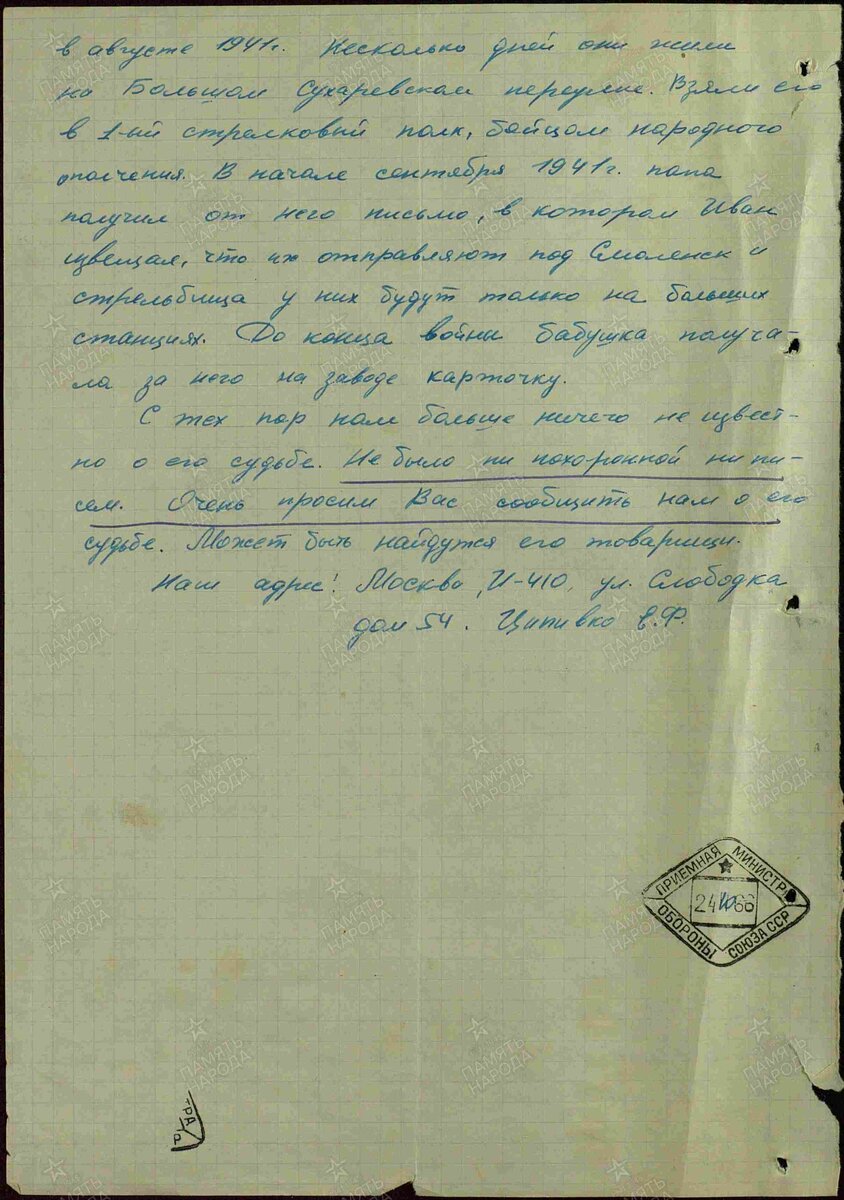 в августе 1941г. Несколько дней они жили
на Большом Сухаревском переулке. Взяли его
в 1-ый стрелковый полк, бойцом народного
ополчения. В начале сентября 1941г. папа
получил от него письмо, в котором Иван
извещал, что их отправляют под Смоленск и
стрельбища у них будут только на больших
станциях. До конца войны бабушка получа-
ла за него на заводе карточку.
С тех пор нам больше ничего не извест-
но о его судьбе. Не было ни похоронной ни пи-
сем. Очень просим Вас сообщить нам о его
судьбе. Может быть найдутся его товарищи.
Наш адрес: Москва, И-410, ул. Слободка
дом 54. Ципивко Е.Ф.
ПРИЕМНАЯ МИНИСТРА
66
ОБОРОНЫ СОЮЗА ССР
ПАМЯТЬ НАРОДА